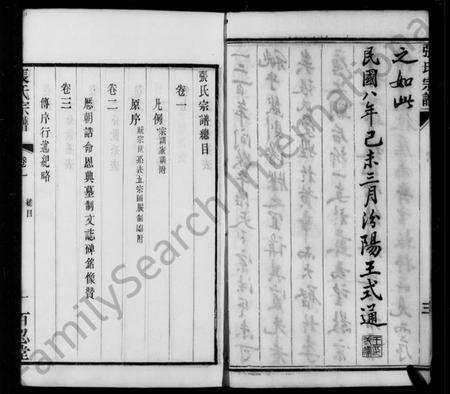 張氏宗譜
三
之如此
民國八年己未三月汾陽王式通
張氏宗譜總目
卷一
凡例
原序
卷二
歷朝誥命恩典墓制文誌碑銘像贊
卷三
傳序行述紀略
張氏宗譜
卷一
總目
一
百忍堂
FamilySearch International